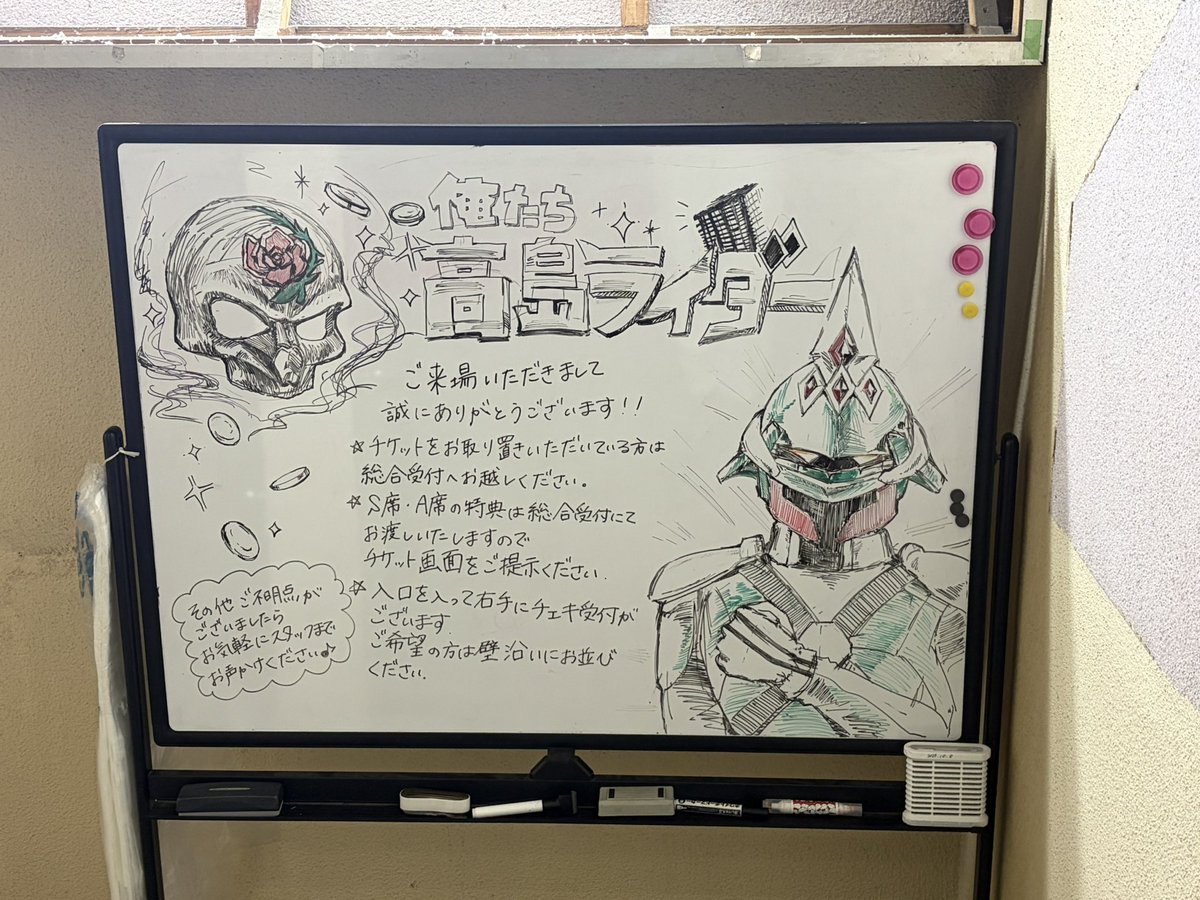 俺たち
高島ライダー
ご来場いただきまして
誠にありがとうございます!!
☆チケットをお取り置きいただいている方は
総合受付へお越しください。
☆S席・A席の特典は総合受付にて
お渡しいたしますので
チケット画面をご提示ください.
☆入口を入って右手にチェキ受付が
ございます
ご希望の方は壁沿いにお並び
ください.
その他ご不明点が
ございましたら
お気軽にスタッフまで
お声かけください♪